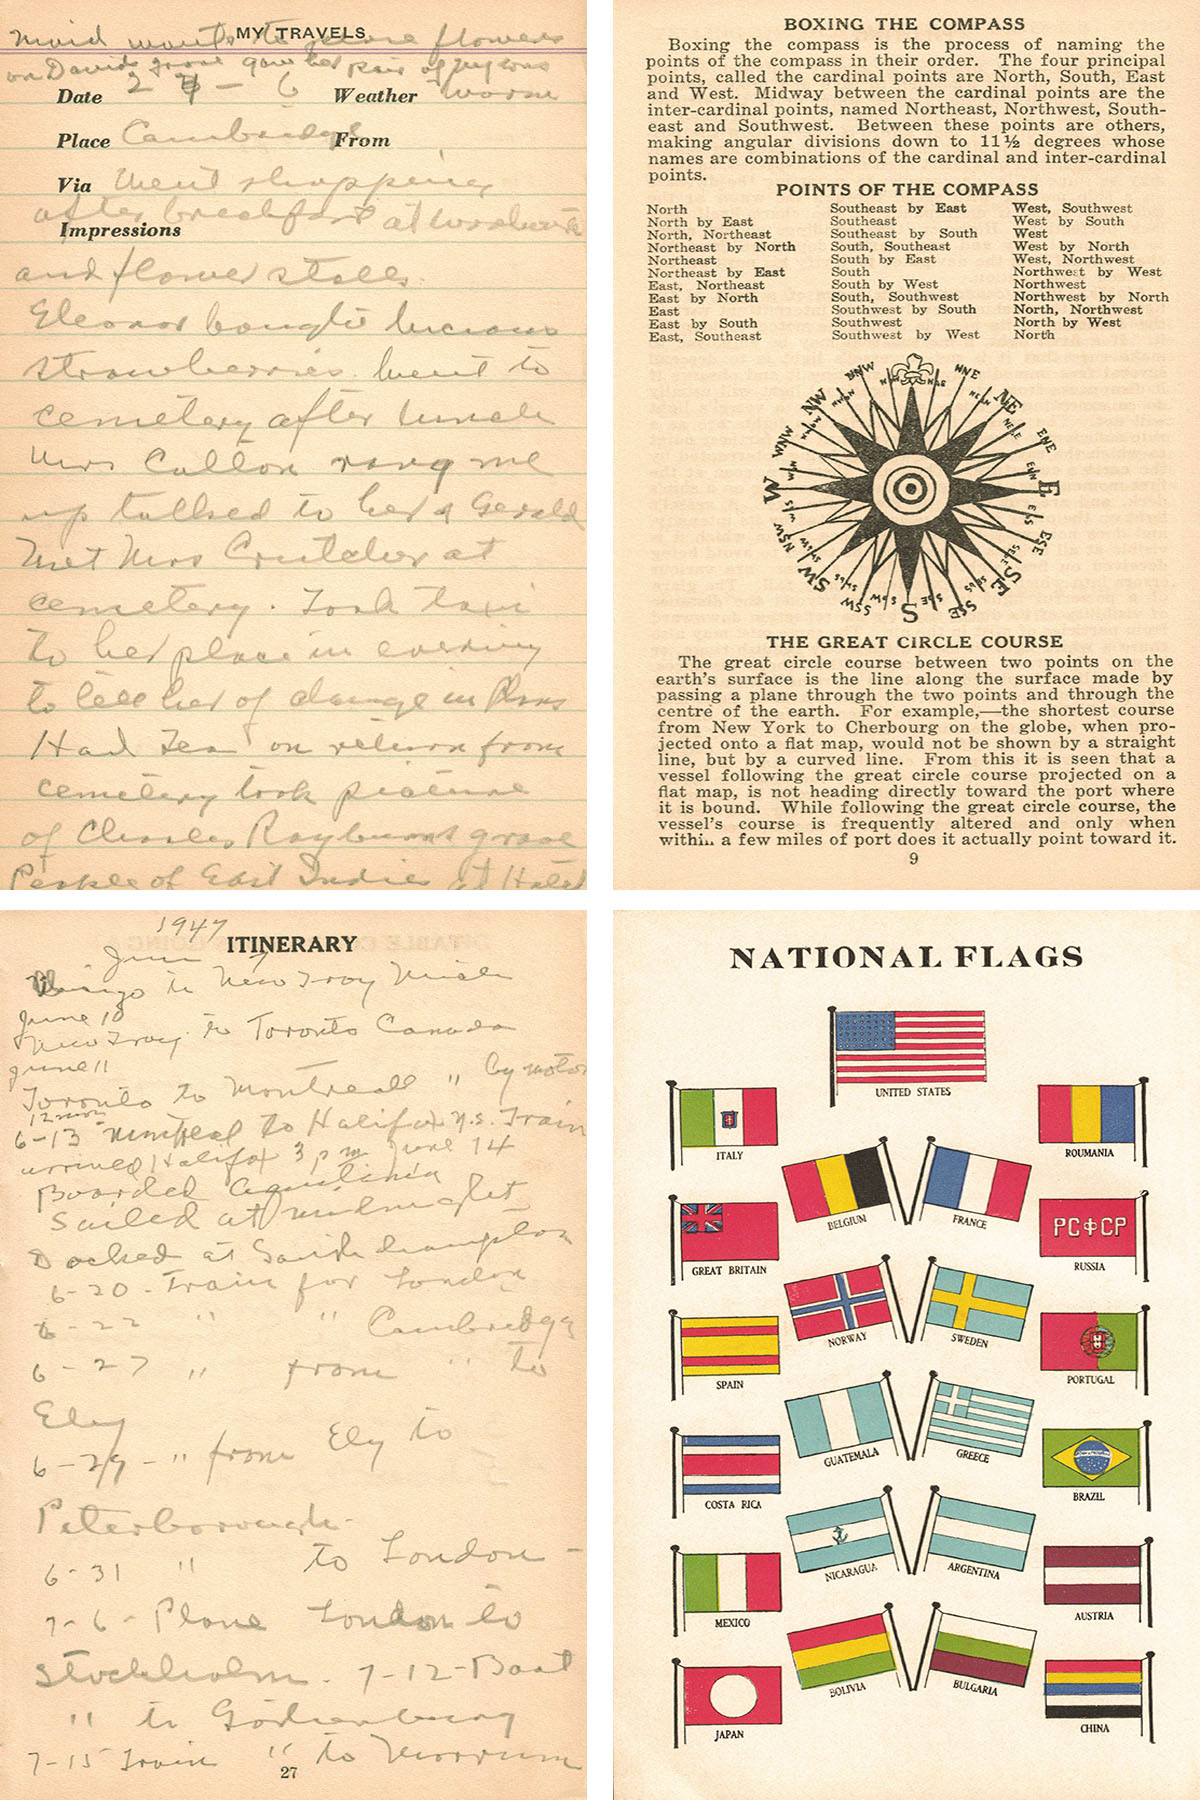 MY TRAVELS
Maid wants to place flowers
on Davids grave gave her pair of my
Date 2 - 6 Weather Warm
Place Cambridge From
Via Went shopping
after breakfast at
Impressions
and flower stalls
Eleanor bought luscious
strawberries. Went to
cemetery after lunch
Mrs Callon rang me
up talked to her & Gerald
Met Mrs Crutcher at
cemetery. Took taxi
to her place in evening
to tell her of change in plans
Had Tea on return from
cemetery took picture
of Charles Rayburns grave
People of East Indies at Hotel
BOXING THE COMPASS
Boxing the compass is the process of naming the
points of the compass in their order. The four principal
points, called the cardinal points are North, South, East
and West. Midway between the cardinal points are the
inter-cardinal points, named Northeast, Northwest, South-
east and Southwest. Between these points are others,
making angular divisions down to 11½ degrees whose
names are combinations of the cardinal and inter-cardinal
points.
POINTS OF THE COMPASS
North
North by East
North, Northeast
Northeast by North
Northeast
Northeast by East
East, Northeast
East by North
East
East by South
East, Southeast
Southeast by East
Southeast
Southeast by South
South, Southeast
South by East
South
South by West
South, Southwest
Southwest by South
Southwest
Southwest by West
West, Southwest
West by South
West
West by North
West, Northwest
Northwest by West
Northwest
Northwest by North
North, Northwest
North by West
North
NNW
NNE
NW
NE
WNW
ENE
W
E
WSW
ESE
SW
SE
SSW
SSE
S
THE GREAT CIRCLE COURSE
The great circle course between two points on the
earth's surface is the line along the surface made by
passing a plane through the two points and through the
centre of the earth. For example,—the shortest course
from New York to Cherbourg on the globe, when pro-
jected onto a flat map, would not be shown by a straight
line, but by a curved line. From this it is seen that a
vessel following the great circle course projected on a
flat map, is not heading directly toward the port where
it is bound. While following the great circle course, the
vessel's course is frequently altered and only when
within a few miles of port does it actually point toward it.
9
1947
ITINERARY
June 7
to New Troy Mich
June 10
New Troy to Toronto Canada
June 11
Toronto to Montreall " by motor
12 noon
6-13 Montreal to Halifax N.S. Train
arrived Halifax 3 pm June 14
Boarded Aquitania
Sailed at midnight
Docked at Southhampton
6-20 - Train for London
6-22 " " Cambridge
6-27 " from " to
Ely
6-29 - " from Ely to
Peterborough-
6-31 " to London -
7-6 - Plane London to
Stockholm. 7-12-Boat
" to Gothenburg
7-15 Train " to
27
NATIONAL FLAGS
UNITED STATES
ITALY
ROUMANIA
BELGIUM
FRANCE
GREAT BRITAIN
РСФСР
RUSSIA
NORWAY
SWEDEN
SPAIN
PORTUGAL
GUATEMALA
GREECE
COSTA RICA
BRAZIL
NICARAGUA
ARGENTINA
MEXICO
AUSTRIA
BOLIVIA
BULGARIA
JAPAN
CHINA